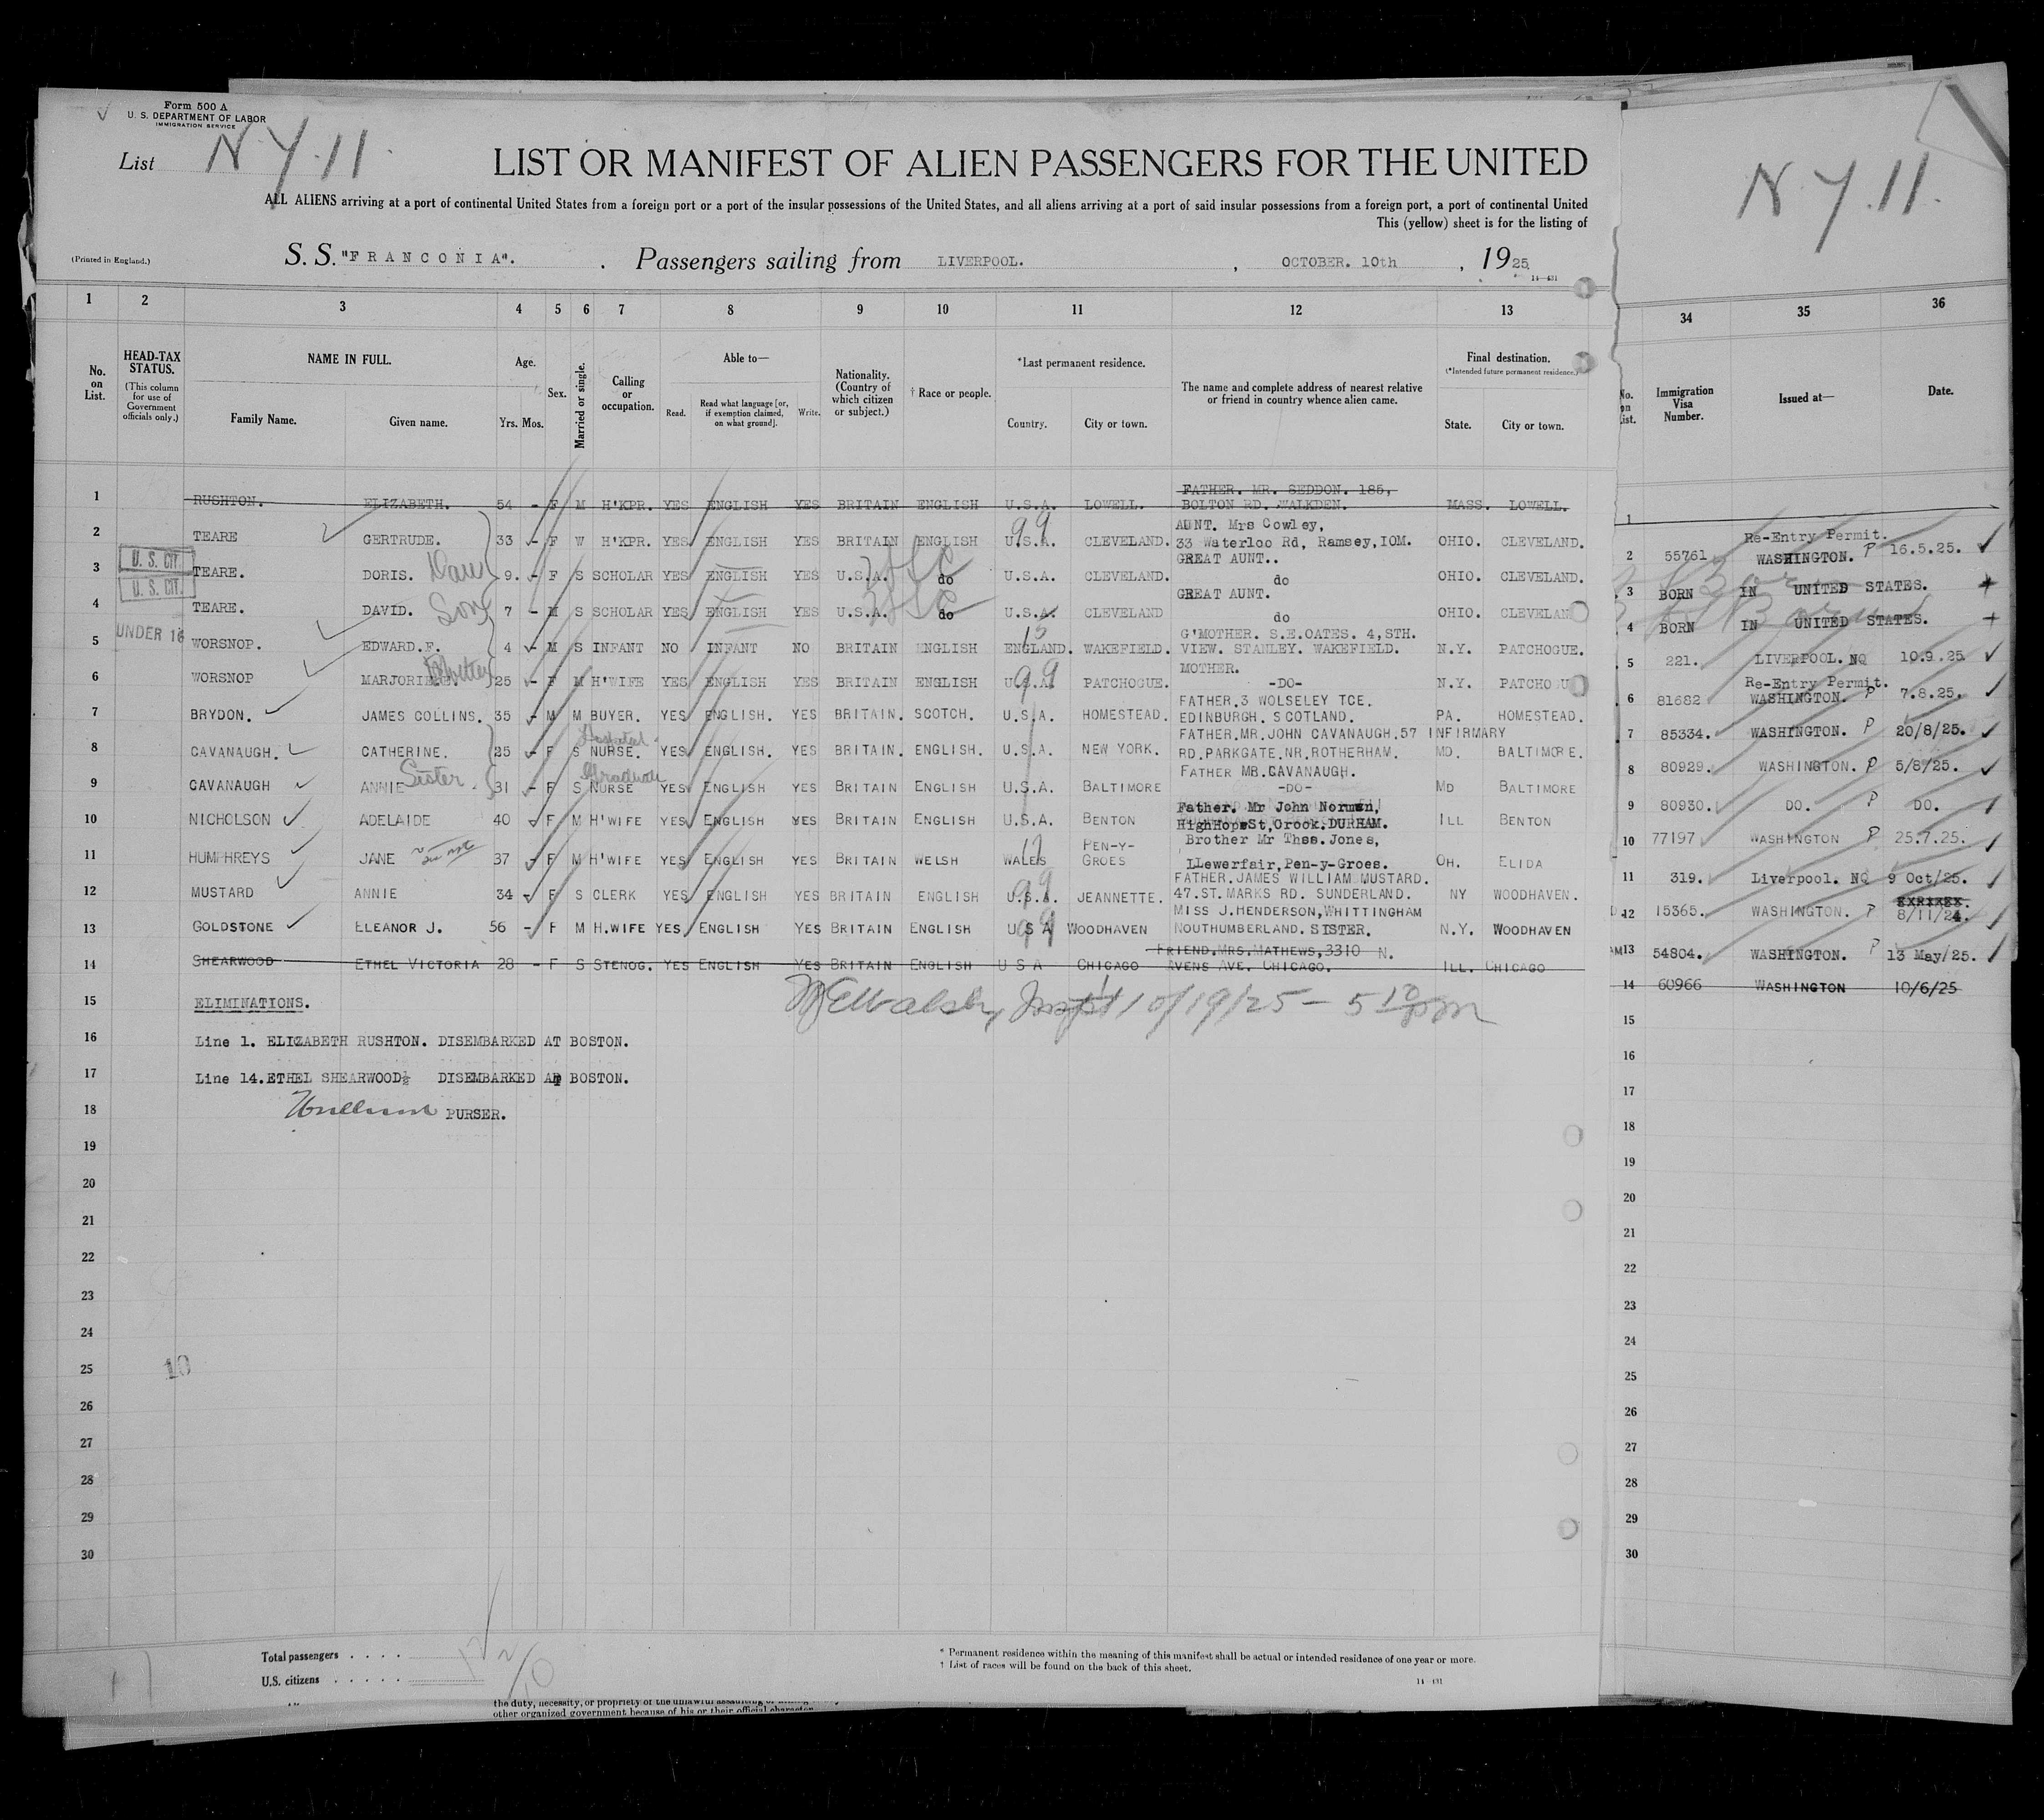 Form 500 A
U. S. DEPARTMENT OF LABOR
IMMIGRATION SERVICE
List N.Y.11.
LIST OR MANIFEST OF ALIEN PASSENGERS FOR THE UNITED
ALL ALIENS arriving at a port of continental United States from a foreign port or a port of the insular possessions of the United States, and all aliens arriving at a port of said insular possessions from a foreign port, a port of continental United
This (yellow) sheet is for the listing of
(Printed in England.)
S. S. "FRANCONIA". Passengers sailing from LIVERPOOL. , OCTOBER. 10th , 1925
14—431
N.Y.11.
1 2 3 4 5 6 7 8 9 10 11 12 13
34 35 36
No. on List.
HEAD-TAX STATUS.
(This column for use of Government officials only.)
NAME IN FULL.
Family Name. Given name.
Age.
Yrs. Mos.
Sex.
Married or single.
Calling or occupation.
Able to—
Read. Read what language [or, if exemption claimed, on what ground]. Write.
Nationality. (Country of which citizen or subject.)
† Race or people.
*Last permanent residence.
Country. City or town.
The name and complete address of nearest relative or friend in country whence alien came.
Final destination.
(*Intended future permanent residence.)
State. City or town.
No. on List.
Immigration Visa Number.
Issued at—
Date.
1 RUSHTON. ELIZABETH. 54 - F M H'KPR. YES ENGLISH YES BRITAIN ENGLISH U.S.A. LOWELL. FATHER. MR. SEDDON. 185, BOLTON RD. WALKDEN. MASS. LOWELL.
1
2 TEARE GERTRUDE. 33 - F W H'KPR. YES ENGLISH YES BRITAIN ENGLISH 99 U.S.A. CLEVELAND. AUNT. Mrs Cowley, 33 Waterloo Rd, Ramsey, IOM. OHIO. CLEVELAND.
2 55761 Re-Entry Permit. WASHINGTON. P 16.5.25.
U. S. CIT.
3 TEARE. DORIS. Dau 9. - F S SCHOLAR YES ENGLISH YES U.S.A. do U.S.A. CLEVELAND. GREAT AUNT.. do OHIO. CLEVELAND.
3 BORN IN UNITED STATES. +
U. S. CIT.
4 TEARE. DAVID. Son 7 - M S SCHOLAR YES ENGLISH YES U.S.A. do U.S.A. CLEVELAND GREAT AUNT. do OHIO. CLEVELAN
4 BORN IN UNITED STATES. +
UNDER 16
5 WORSNOP. EDWARD.F. 4 - M S INFANT NO INFANT NO BRITAIN ENGLISH 15 ENGLAND. WAKEFIELD. G'MOTHER. S.E.OATES. 4,STH. VIEW. STANLEY. WAKEFIELD. N.Y. PATCHOGUE.
5 221. LIVERPOOL. NQ 10.9.25
6 WORSNOP MARJORIE 25 - F M H'WIFE YES ENGLISH YES BRITAIN ENGLISH 99 U.S.A. PATCHOGUE. MOTHER. -DO- N.Y. PATCHOGU
6 81682 Re-Entry Permit. WASHINGTON. P 7.8.25.
7 BRYDON. JAMES COLLINS. 35 - M M BUYER. YES ENGLISH. YES BRITAIN. SCOTCH. U.S.A. HOMESTEAD. FATHER.3 WOLSELEY TCE. EDINBURGH. SCOTLAND. PA. HOMESTEAD.
7 85334. WASHINGTON. P 20/8/25.
8 CAVANAUGH. CATHERINE. 25 - F S NURSE. YES ENGLISH. YES BRITAIN. ENGLISH. U.S.A. NEW YORK. FATHER.MR.JOHN CAVANAUGH.57 INFIRMARY RD.PARKGATE.NR.ROTHERHAM. MD. BALTIMORE.
8 80929. WASHINGTON. P 5/8/25.
9 CAVANAUGH ANNIE Sister 31 - F S Graduate NURSE YES ENGLISH YES BRITAIN ENGLISH U.S.A. BALTIMORE FATHER MR.CAVANAUGH. -DO- MD BALTIMORE
9 80930. DO. P DO.
10 NICHOLSON ADELAIDE 40 - F M H'WIFE YES ENGLISH YES BRITAIN ENGLISH U.S.A. BENTON Father. Mr John Norman, HighHopeSt,Crook.DURHAM. ILL BENTON
10 77197 WASHINGTON P 25.7.25.
11 HUMPHREYS JANE 37 - F M H'WIFE YES ENGLISH YES BRITAIN WELSH WALES PEN-Y-GROES Brother Mr Thos.Jones, LLewerfair,Pen-y-Groes. OH. ELIDA
11 319. Liverpool. NQ 9 Oct/25.
12 MUSTARD ANNIE 34 - F S CLERK YES ENGLISH YES BRITAIN ENGLISH 99 U.S.A. JEANNETTE. FATHER.JAMES WILLIAM MUSTARD. 47.ST.MARKS RD. SUNDERLAND. NY WOODHAVEN.
12 15365. WASHINGTON. P 8/11/24.
13 GOLDSTONE ELEANOR J. 56 - F M H.WIFE YES ENGLISH YES BRITAIN ENGLISH 99 U S A WOODHAVEN MISS J.HENDERSON,WHITTINGHAM NOUTHUMBERLAND. SISTER. N.Y. WOODHAVEN
13 54804. WASHINGTON. P 13 May/25.
14 SHEARWOOD ETHEL VICTORIA 28 - F S STENOG. YES ENGLISH YES BRITAIN ENGLISH U S A CHICAGO FRIEND.MRS.MATHEWS,3310 N. AVENS AVE. CHICAGO. ILL. CHICAGO
14 60966 WASHINGTON 10/6/25
15 ELIMINATIONS.
Walsh, Inspt 10/19/25 - 5 10 pm
15
16 Line 1. ELIZABETH RUSHTON. DISEMBARKED AT BOSTON.
16
17 Line 14.ETHEL SHEARWOOD½ DISEMBARKED AT BOSTON.
17
18 PURSER.
18
19 19
20 20
21 21
22 22
23 23
24 24
25 10 25
26 26
27 27
28 28
29 29
30 30
Total passengers . . . . 12
U.S. citizens . . . . . 2/10
* Permanent residence within the meaning of this manifest shall be actual or intended residence of one year or more.
† List of races will be found on the back of this sheet.
14—431
the duty, necessity, or propriety of the unlawful assaulting
other organized government because of his or their official character